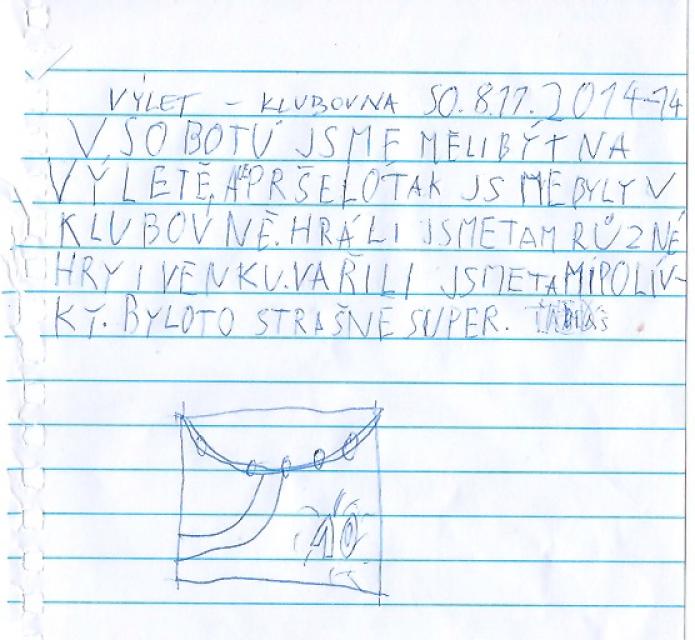 VÝLET - KLUBOVNA SO. 8.11.2014-14
V SOBOTU JSME MĚLI BÝT NA
VÝLETĚ, ALE PRŠELO TAK JSME BYLY V
KLUBOVNĚ. HRÁLI JSME TAM RŮZNÉ
HRY I VENKU. VAŘILI JSME TAM I POLÍV-
KY. BYLO TO STRAŠNĚ SUPER.
10